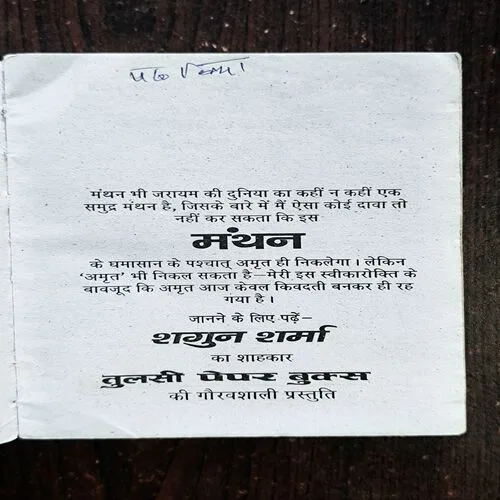 मंथन भी जरायम की दुनिया का कहीं न कहीं एक
समुद्र मंथन है, जिसके बारे में मैं ऐसा कोई दावा तो
नहीं कर सकता कि इस
मंथन
के घमासान के पश्चात् अमृत ही निकलेगा। लेकिन
‘अमृत’ भी निकल सकता है—मेरी इस स्वीकारोक्ति के
बावजूद कि अमृत आज केवल किवदती बनकर ही रह
गया है।
जानने के लिए पढ़ें—
शगुन शर्मा
का शाहकार
तुलसी पेपर बुक्स
की गौरवशाली प्रस्तुति